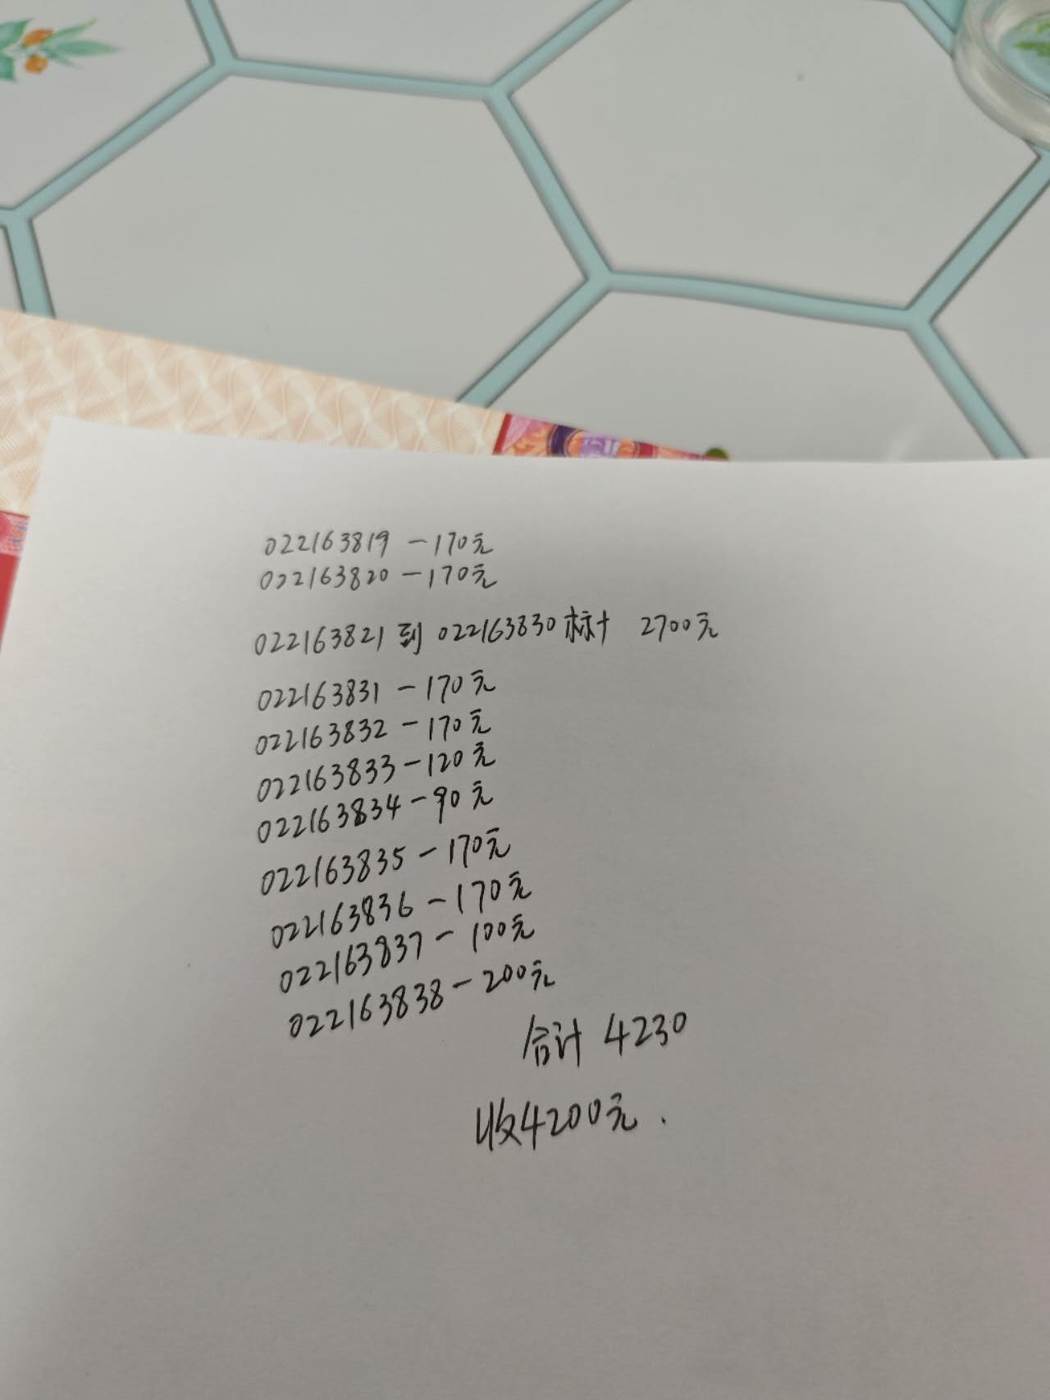 022163819 - 170元
022163820 - 170元
022163821 到 022163830 标十 2700元
022163831 - 170元
022163832 - 170元
022163833 - 120元
022163834 - 90元
022163835 - 170元
022163836 - 170元
022163837 - 100元
022163838 - 200元
合计 4230
收4200元.